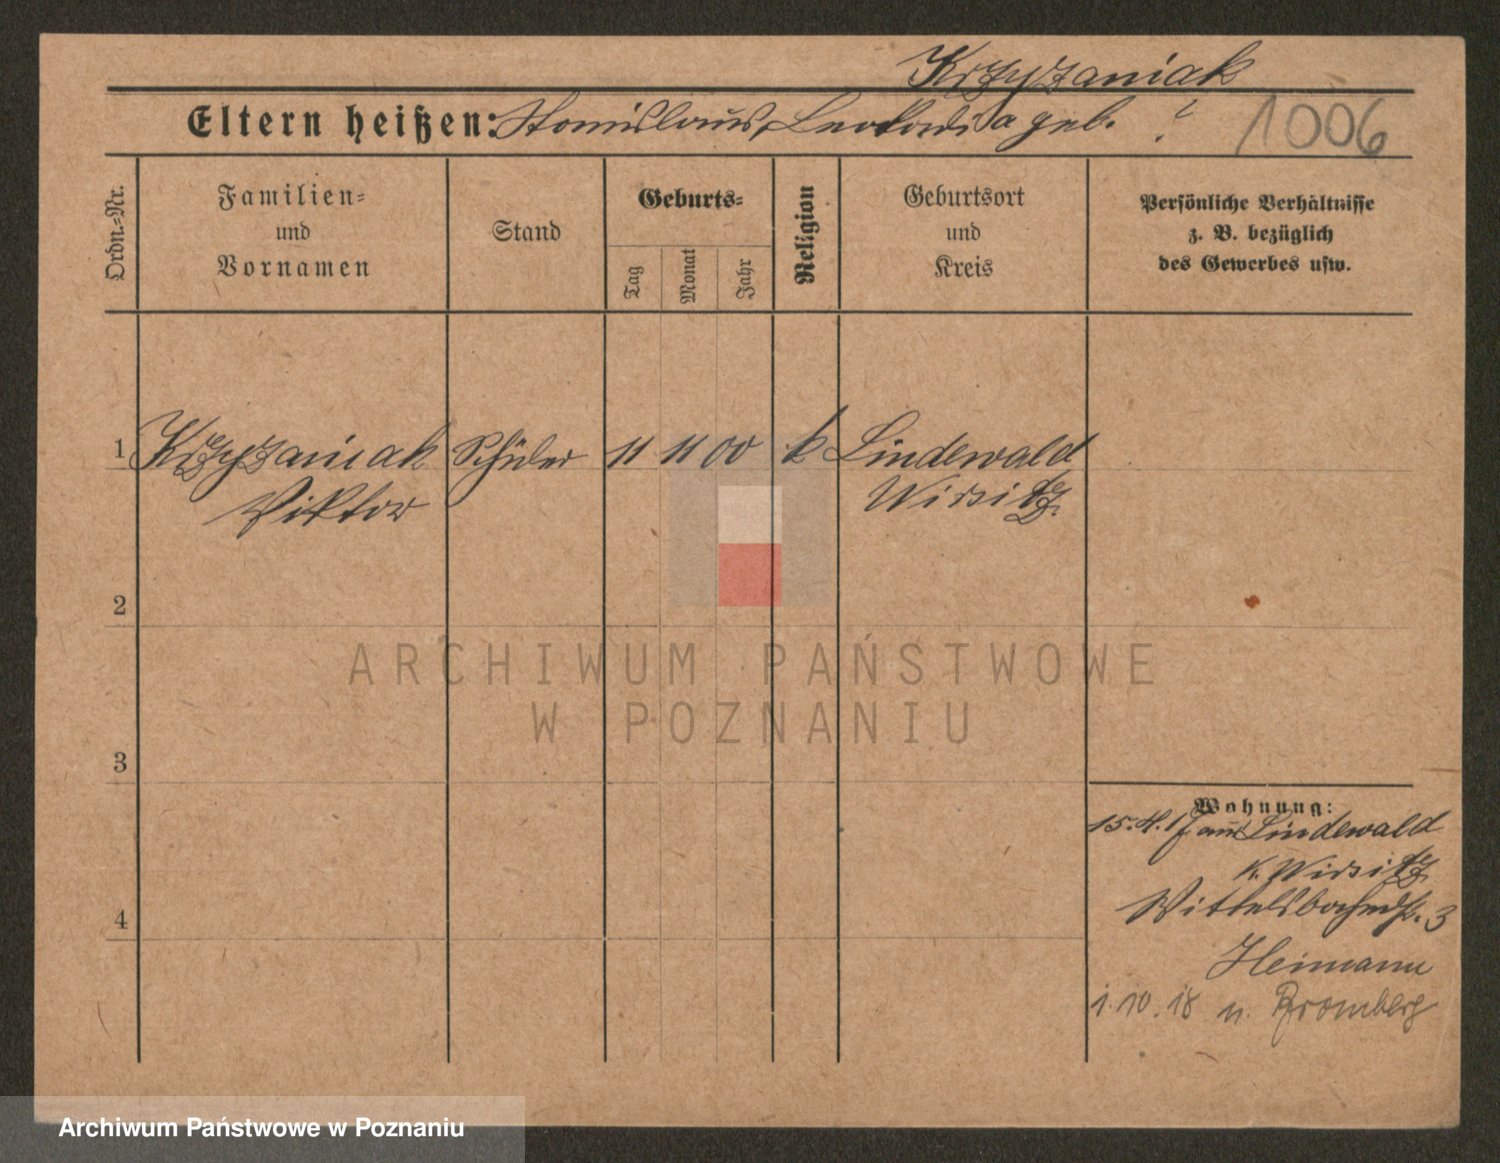 Krzyzaniak
Eltern heißen: Stanislaus, Leokadia geb. ?
1006
Ordn.-Nr.
Familien-
und
Vornamen
Stand
Geburts-
Tag
Monat
Jahr
Religion
Geburtsort
und
Kreis
Persönliche Verhältnisse
z. B. bezüglich
des Gewerbes usw.
1 Krzyzaniak Schüler 11 11 00 k Lindewald
Viktor Wirsitz
2
3
4
Wohnung:
15.4.17 aus Lindewald
K. Wirsitz
Wittelsbacherstr. 3
Heimann
1.10.18 n. Bromberg
ARCHIWUM PAŃSTWOWE
W POZNANIU
Archiwum Państwowe w Poznaniu